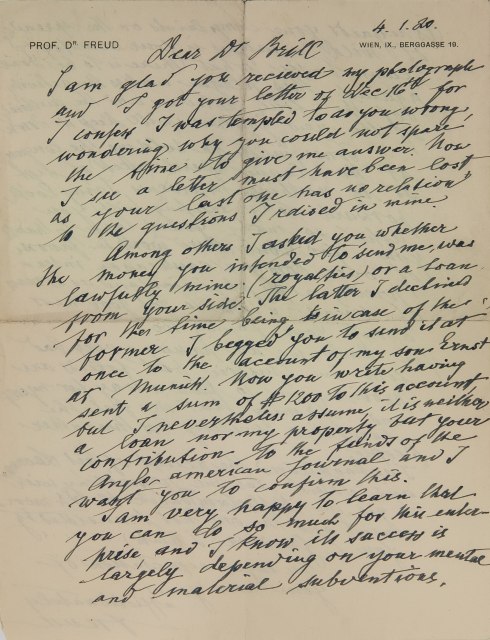 4. 1. 20.
PROF. Dr FREUD
WIEN, IX., BERGGASSE 19.
Dear Dr Brill
I am glad you recieved my photograph
and I got your letter of Dec 16th for
I confess I was tempted to do you wrong,
wondering why you could not spare
the time to give me answer. Now
I see a letter must have been lost
as your last one has no relation
to the questions I raised in mine
Among others I asked you whether
the money you intended to send me, was
lawfully mine (royalties) or a loan
from your side. The latter I declined
for the time being, in case of the
former I begged you to send it at
once to the account of my son Ernst
at Munich. Now you write having
sent a sum of $ 1200 to this account
but I nevertheless assume, it is neither
a loan nor my property but your
contribution to the funds of the
Anglo-american Journal and I
want you to confirm this.
I am very happy to learn that
you can do so much for this enter-
prise, and I know its success is
largely depending on your mental
and material subventions.